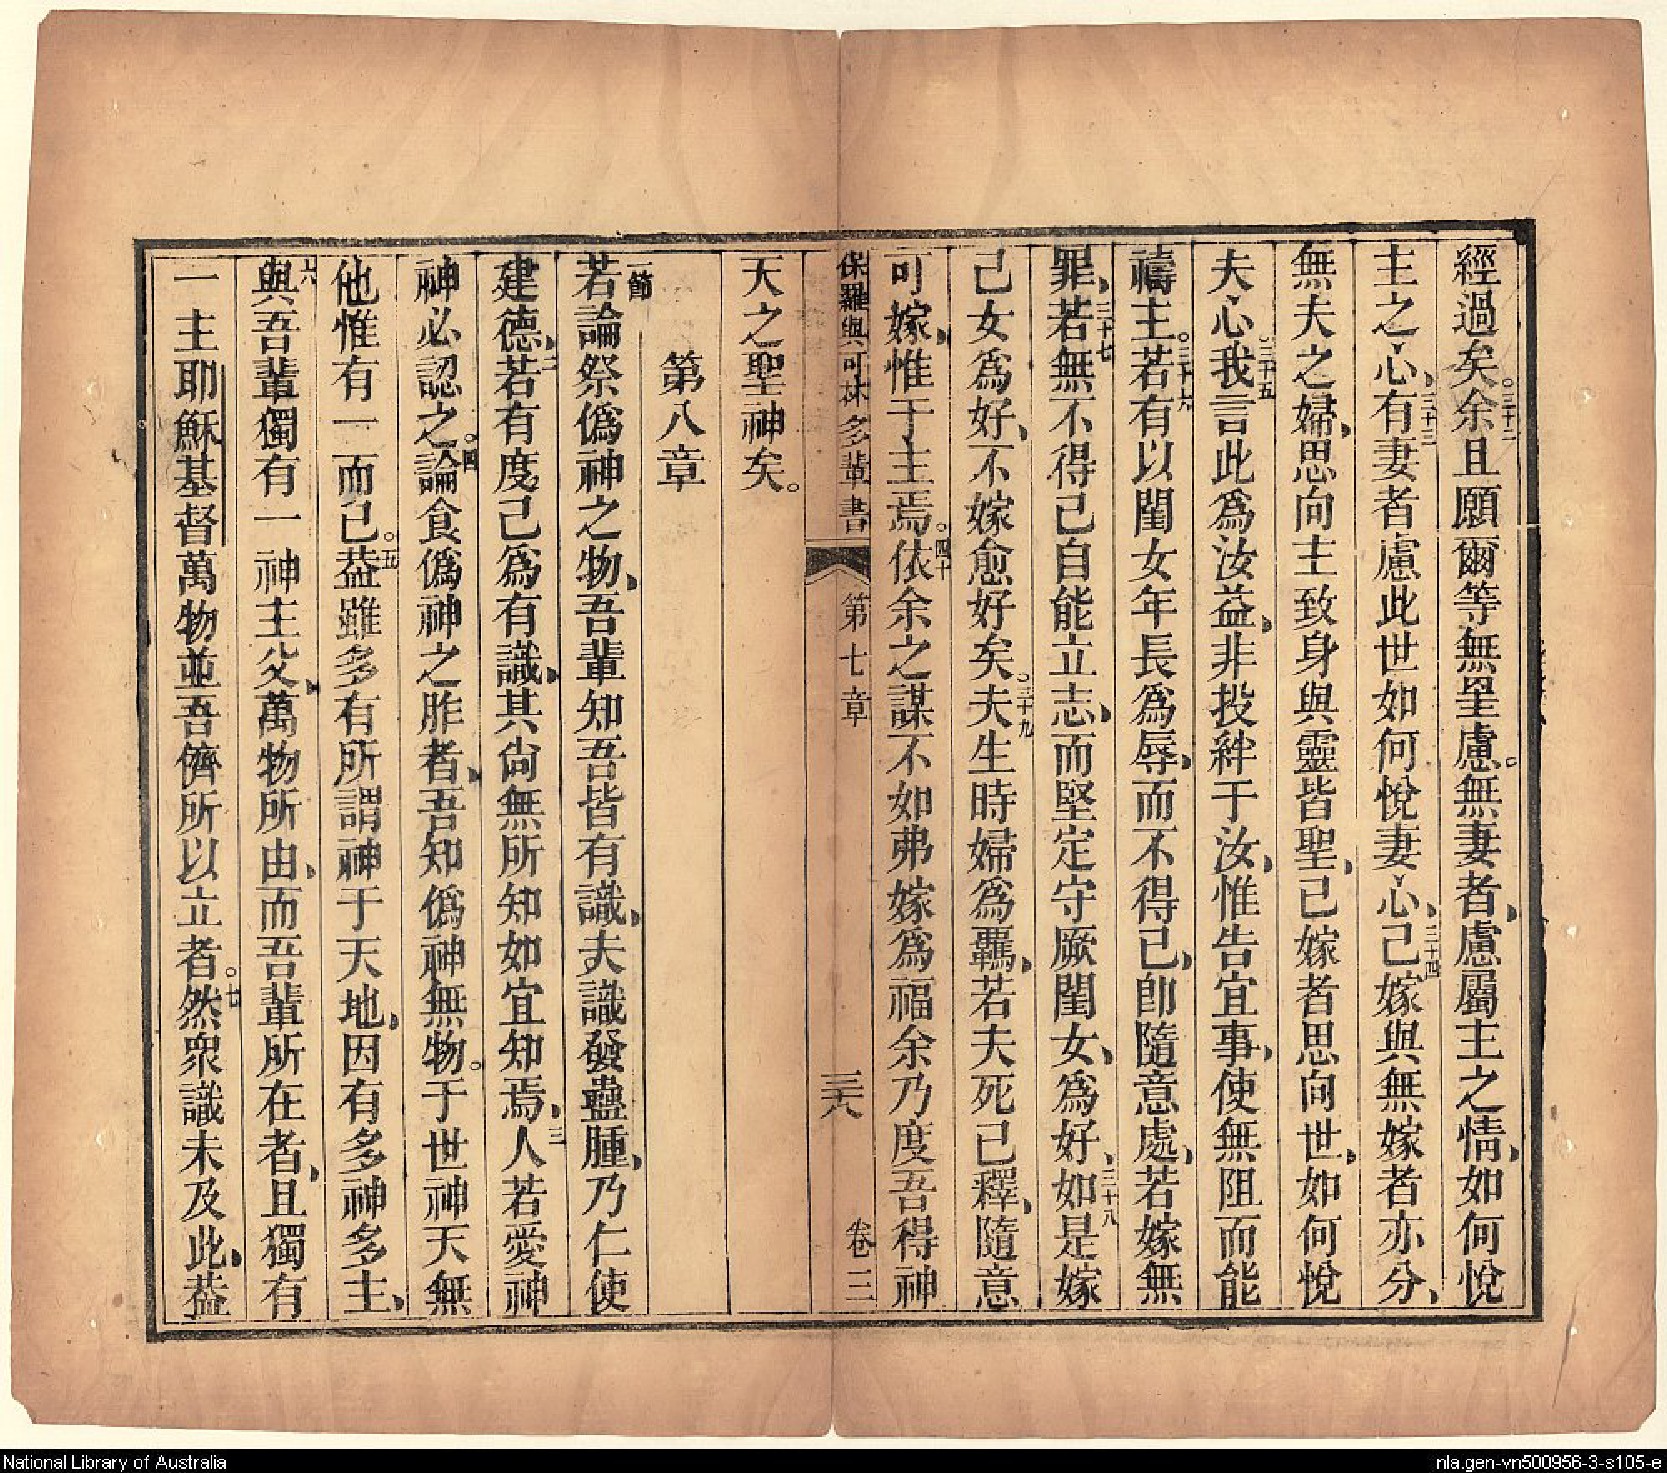 經過矣。三十二余且願爾等無罣慮。無妻者、慮屬主之情、如何悅
主之心、三十三有妻者慮此世如何悅妻心、三十四已嫁與無嫁者亦分、
無夫之婦、思向主致身與靈皆聖、已嫁者思向世、如何悅
夫心。三十五我言此爲汝益、非投絆于汝、惟告宜事、使無阻而能
禱主。三十六若有以閨女年長爲辱、而不得已、卽隨意處、若嫁無
罪、三十七若無不得已自能立志、而堅定守厥閨女、爲好、三十八如是嫁
己女爲好、不嫁愈好矣。三十九夫生時婦爲羈、若夫死已釋、隨意
可嫁、惟于主焉。四十依余之謀不如弗嫁爲福余乃度吾得神
保羅與可林多輩書 第七章 三十八 卷三
天之聖神矣。
第八章
一節若論祭僞神之物、吾輩知吾皆有識、夫識發蠱腫、乃仁使
建德、二若有度己爲有識、其尙無所知如宜知焉、三人若愛神
神必認之。四論食僞神之胙者、吾知僞神無物。于世神天無
他惟有一而已。五蓋雖多有所謂神于天地、因有多神多主、
六與吾輩獨有一神主父、萬物所由、而吾輩所在者、且獨有
一主耶穌基督萬物並吾儕所以立者。七然衆識未及此、蓋
National Library of Australia
nla.gen-vn500956-3-s105-e